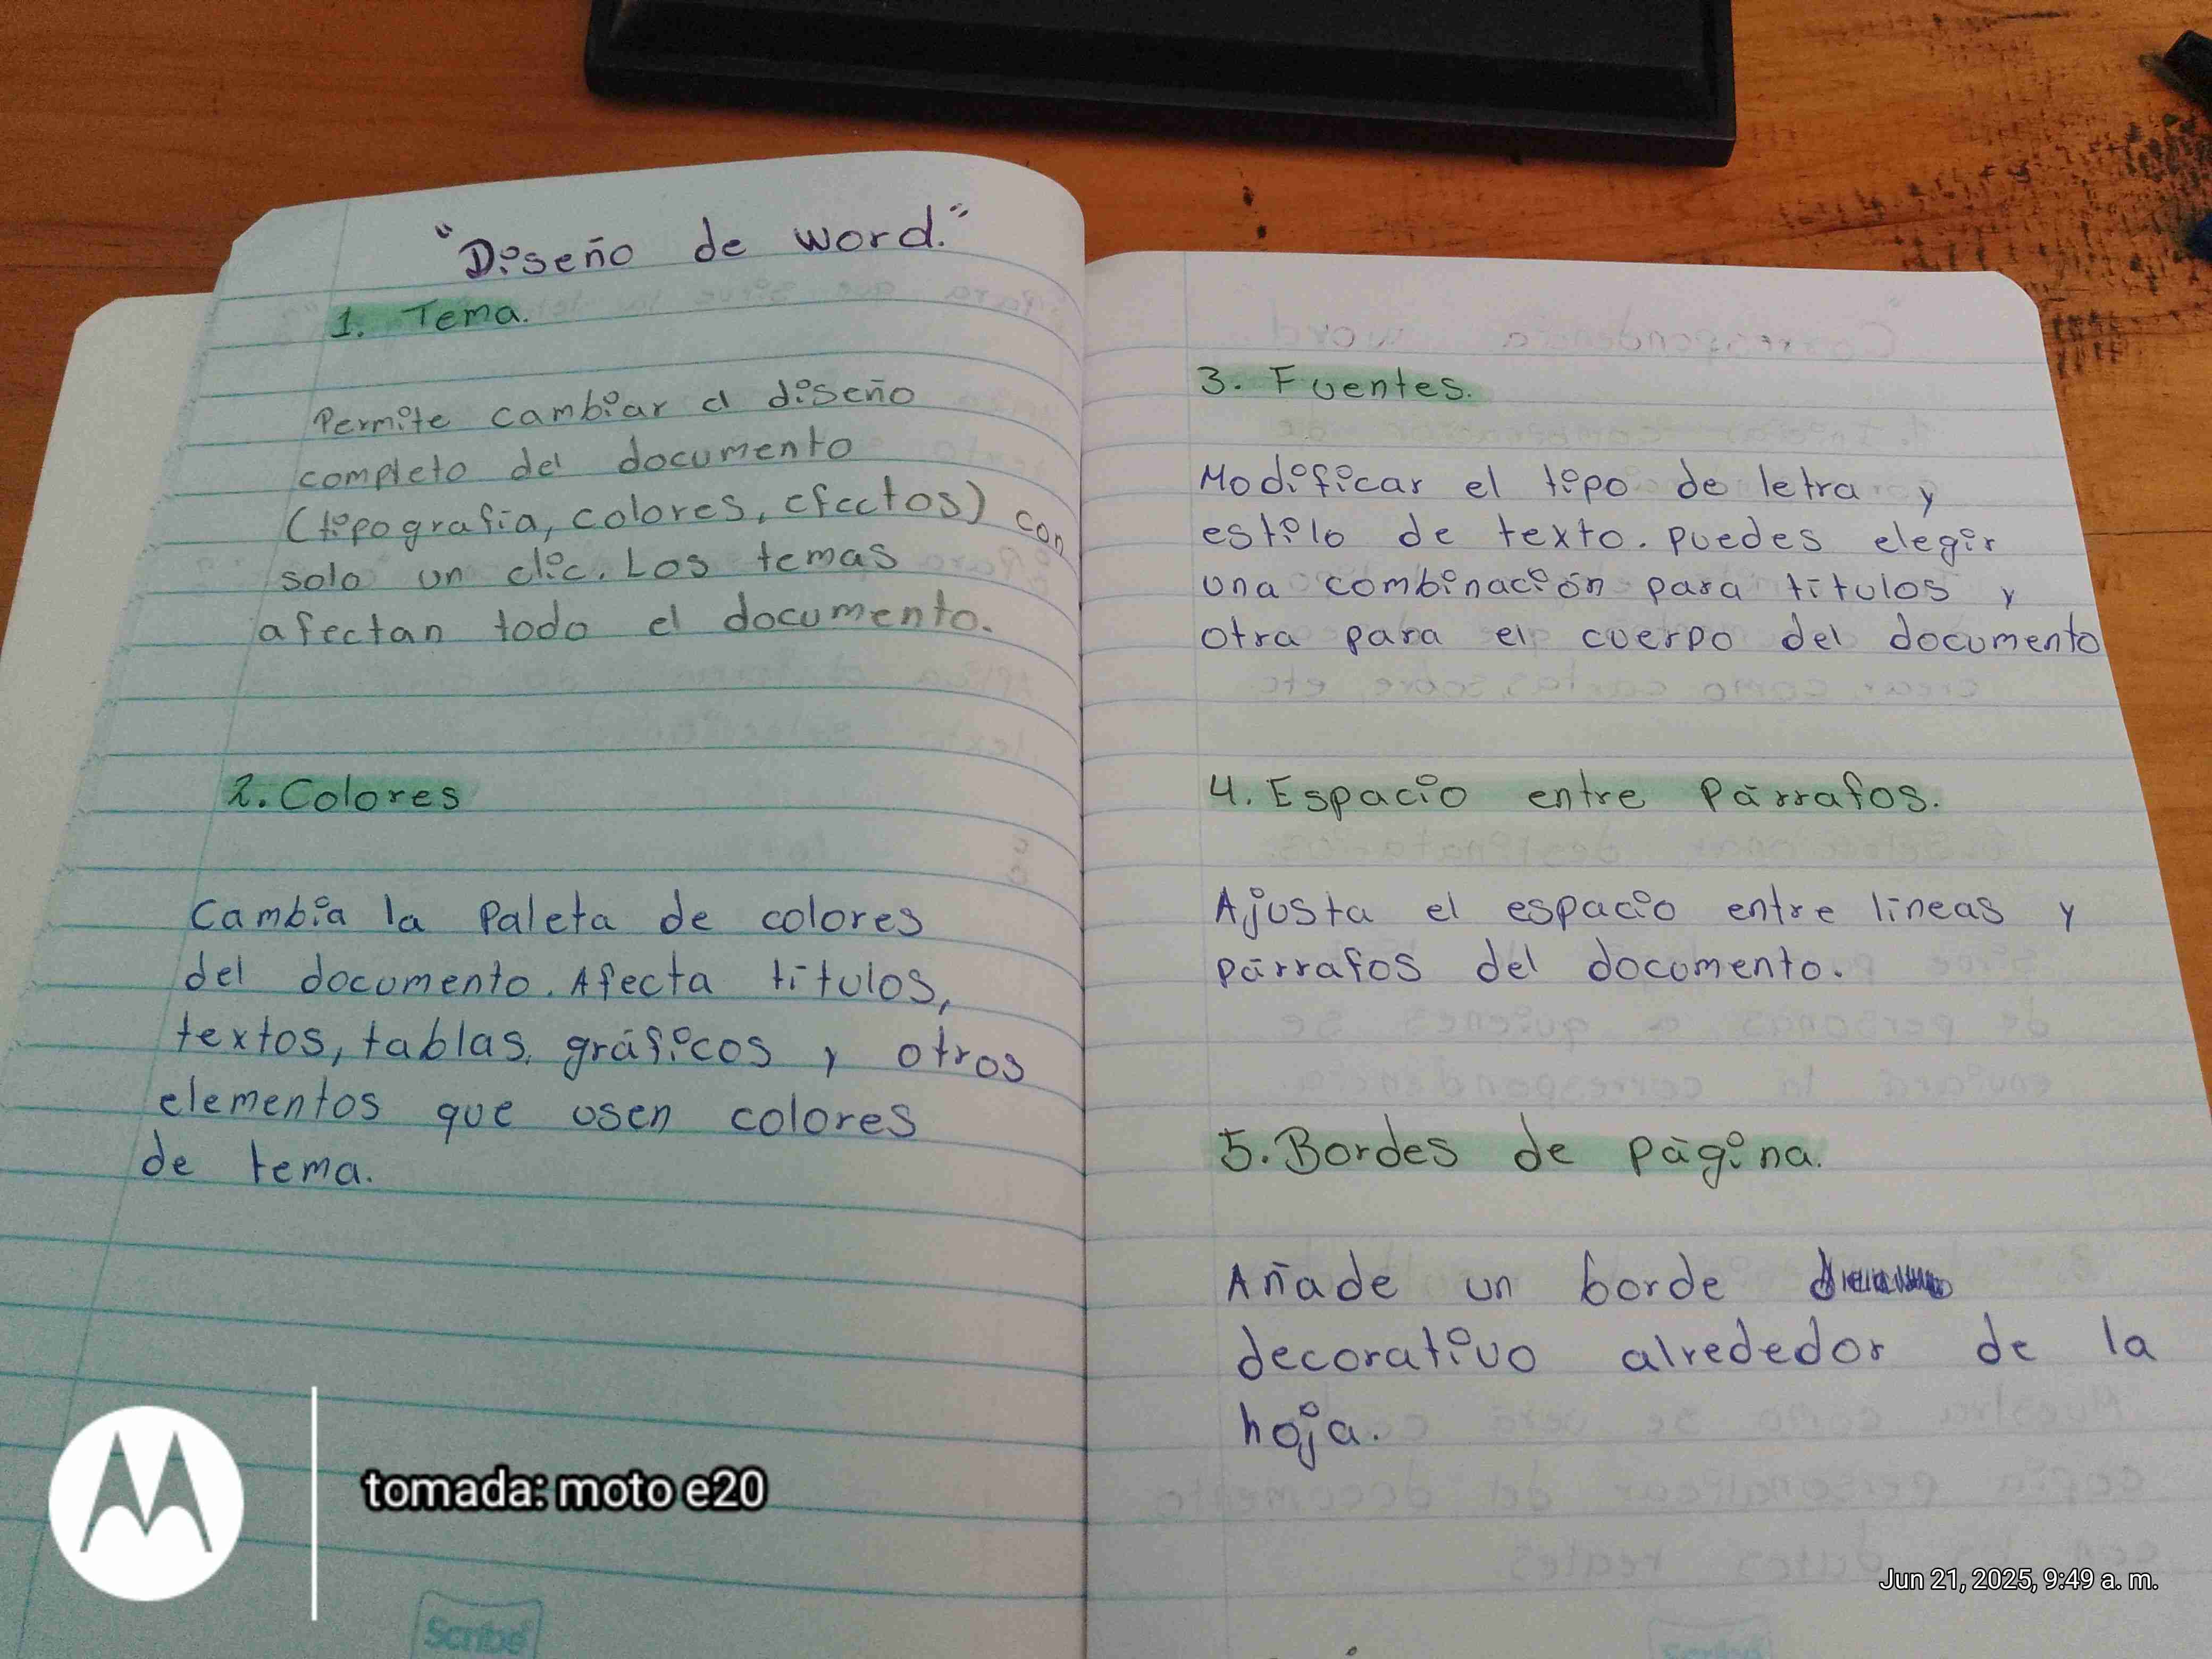 "Diseño de word."
1. Tema.
Permite cambiar el diseño
completo del documento
(tipografía, colores, efectos) con
solo un clic. Los temas
afectan todo el documento.
2. Colores
Cambia la Paleta de colores
del documento. Afecta títulos,
textos, tablas, gráficos y otros
elementos que usen colores
de tema.
3. Fuentes.
Modificar el tipo de letra y
estilo de texto. puedes elegir
una combinación para títulos y
otra para el cuerpo del documento
4. Espacio entre Párrafos.
Ajusta el espacio entre líneas y
párrafos del documento.
5. Bordes de página.
Añade un borde
decorativo alrededor de la
hoja.
tomada: moto e20
Jun 21, 2025, 9:49 a. m.
Scribe